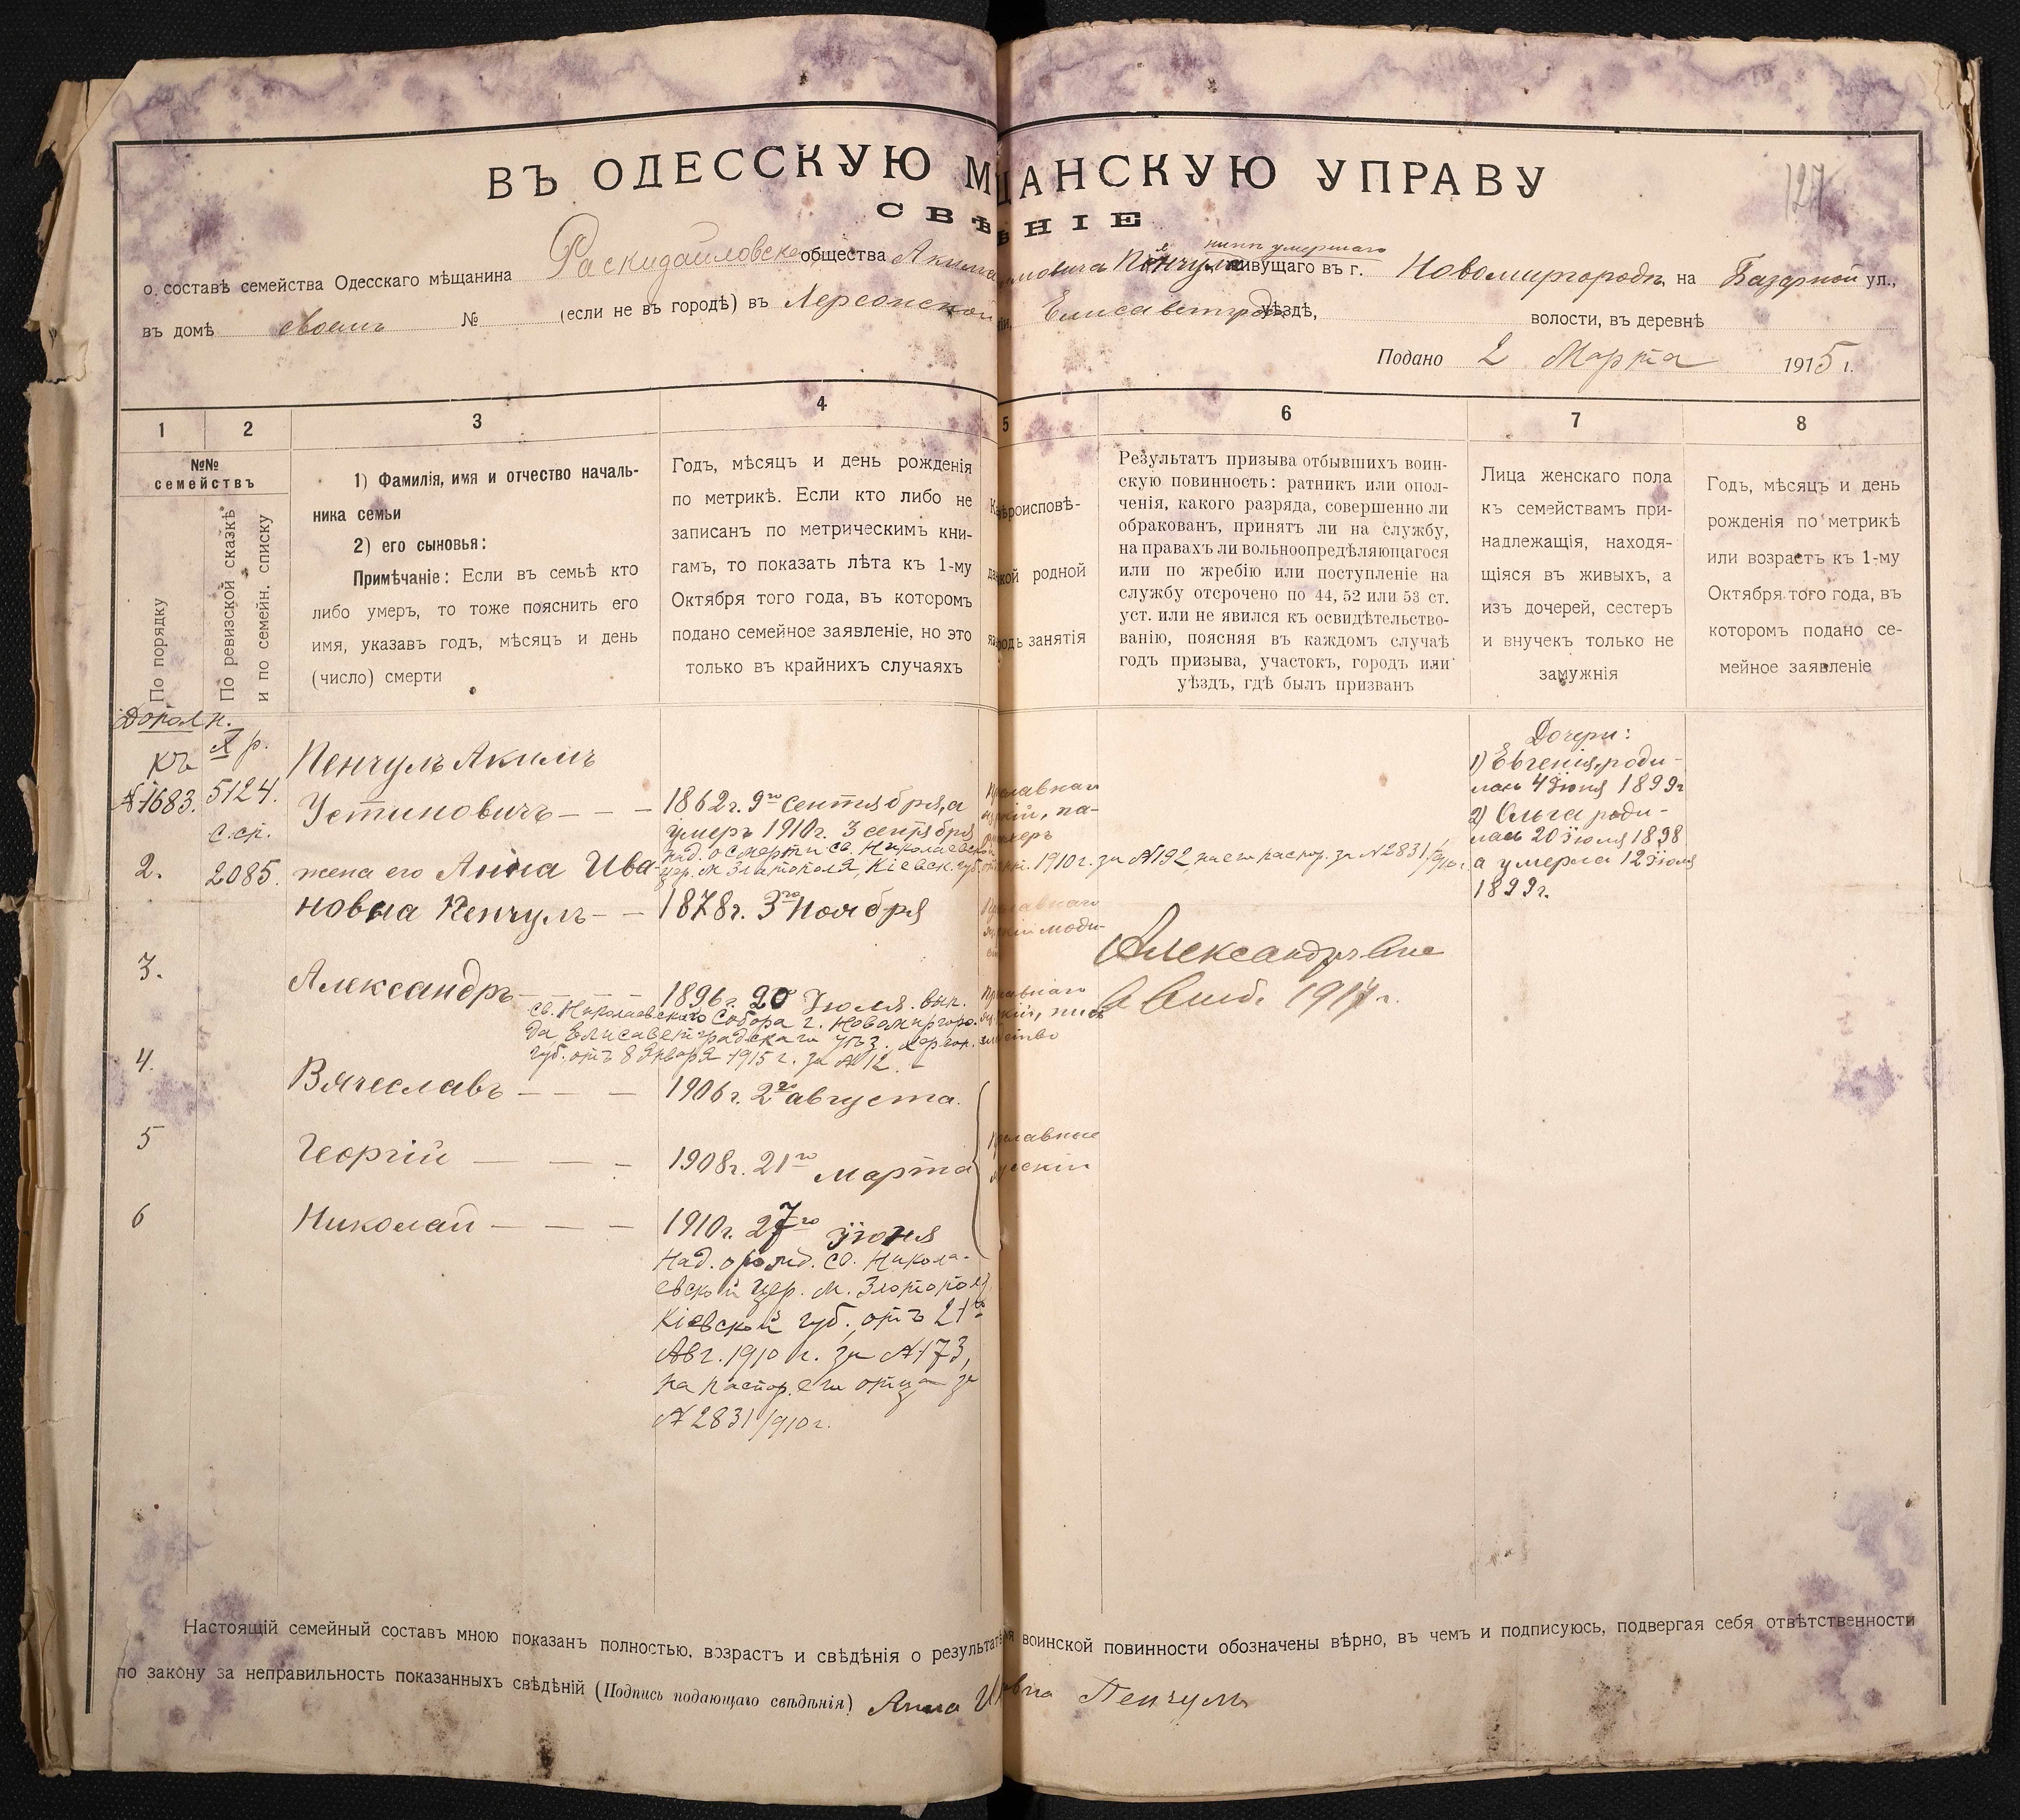 127
ВЪ ОДЕССКУЮ М ЩАНСКУЮ УПРАВУ
СВѢ ѢНІЕ
о составѣ семейства Одесскаго мѣщанина Раскидайловск общества Акима иновича Пенчула нынѣ умершаго живущаго въ г. Новомиргородѣ на Базарной ул.,
въ домѣ своемъ № (если не въ городѣ) въ Херсонской ніи, Елисаветград уѣздѣ, волости, въ деревнѣ
Подано 2 Марта 1915 г.
1 2 3 4 5 6 7 8
№№ семействъ
По порядку
По ревизской сказкѣ
и по семейн. списку
1) Фамилія, имя и отчество началь-
ника семьи
2) его сыновья:
Примѣчаніе: Если въ семьѣ кто
либо умеръ, то тоже пояснить его
имя, указавъ годъ, мѣсяцъ и день
(число) смерти
Годъ, мѣсяцъ и день рожденія
по метрикѣ. Если кто либо не
записанъ по метрическимъ кни-
гамъ, то показать лѣта къ 1-му
Октября того года, въ которомъ
подано семейное заявленіе, но это
только въ крайнихъ случаяхъ
К вѣроисповѣ-
да кой родной
я родъ занятія
Результатъ призыва отбывшихъ воин-
скую повинность: ратникъ или опол-
ченія, какого разряда, совершенно ли
обракованъ, принятъ ли на службу,
на правахъ ли вольноопредѣляющагося
или по жребію или поступленіе на
службу отсрочено по 44, 52 или 53 ст.
уст. или не явился къ освидѣтельство-
ванію, поясняя въ каждомъ случаѣ
годъ призыва, участокъ, городъ или
уѣздъ, гдѣ былъ призванъ
Лица женскаго пола
къ семействамъ при-
надлежащія, находя-
щіяся въ живыхъ, а
изъ дочерей, сестеръ
и внучекъ только не
замужнія
Годъ, мѣсяцъ и день
рожденія по метрикѣ
или возрастъ къ 1-му
Октября того года, въ
которомъ подано се-
мейное заявленіе
Дополн.
къ
№1683.
X р.
5124.
с.сп.
2085.
Пенчулъ Акимъ
Устиновичъ — — —
1862г. 9го сентября, а
умеръ 1910г. 3 сентября
над. о смерти св. Николаевской
цер. м. Златополя, Кіевск. губ. 1910г. за №192, на его паспор. за №2831/910г.
лавнаго
кій, па-
махеръ
2. жена его Анна Ива-
новна Пенчулъ — —
1878г. 3го Ноября
лавнаго
кій моди-
3. Александръ —
1896г. 20 Іюля. вып.
св. Николаевскаго Собора г. Новомиргоро-
да Елисаветградскаго уѣз. Херсон.
губ. отъ 8 Января 1915 г. за №12.
Александръ
1917г.
4. Вячеславъ — — —
1906г. 2го августа.
5 Георгій — — —
1908г. 21го марта
лавные
русскіи
6 Николай — — —
1910г. 27го Іюня
Над. о рожд. св. Никола-
евской цер. м. Златополя
Кіевской губ., отъ 21го
Авг. 1910 г. за №173,
на паспор. его отца за
№2831/910г.
Дочери:
1) Евгенія, роди-
лась 4 Іюня 1899г
2) Ольга роди-
лась 20 Іюля 1898
а умерла 12 Іюля
1899г.
Настоящій семейный составъ мною показанъ полностью, возрастъ и свѣдѣнія о результат я воинской повинности обозначены вѣрно, въ чемъ и подписуюсь, подвергая себя отвѣтственности
по закону за неправильность показанныхъ свѣдѣній (Подпись подающаго свѣдѣнія) Анна И овна Пенчулъ